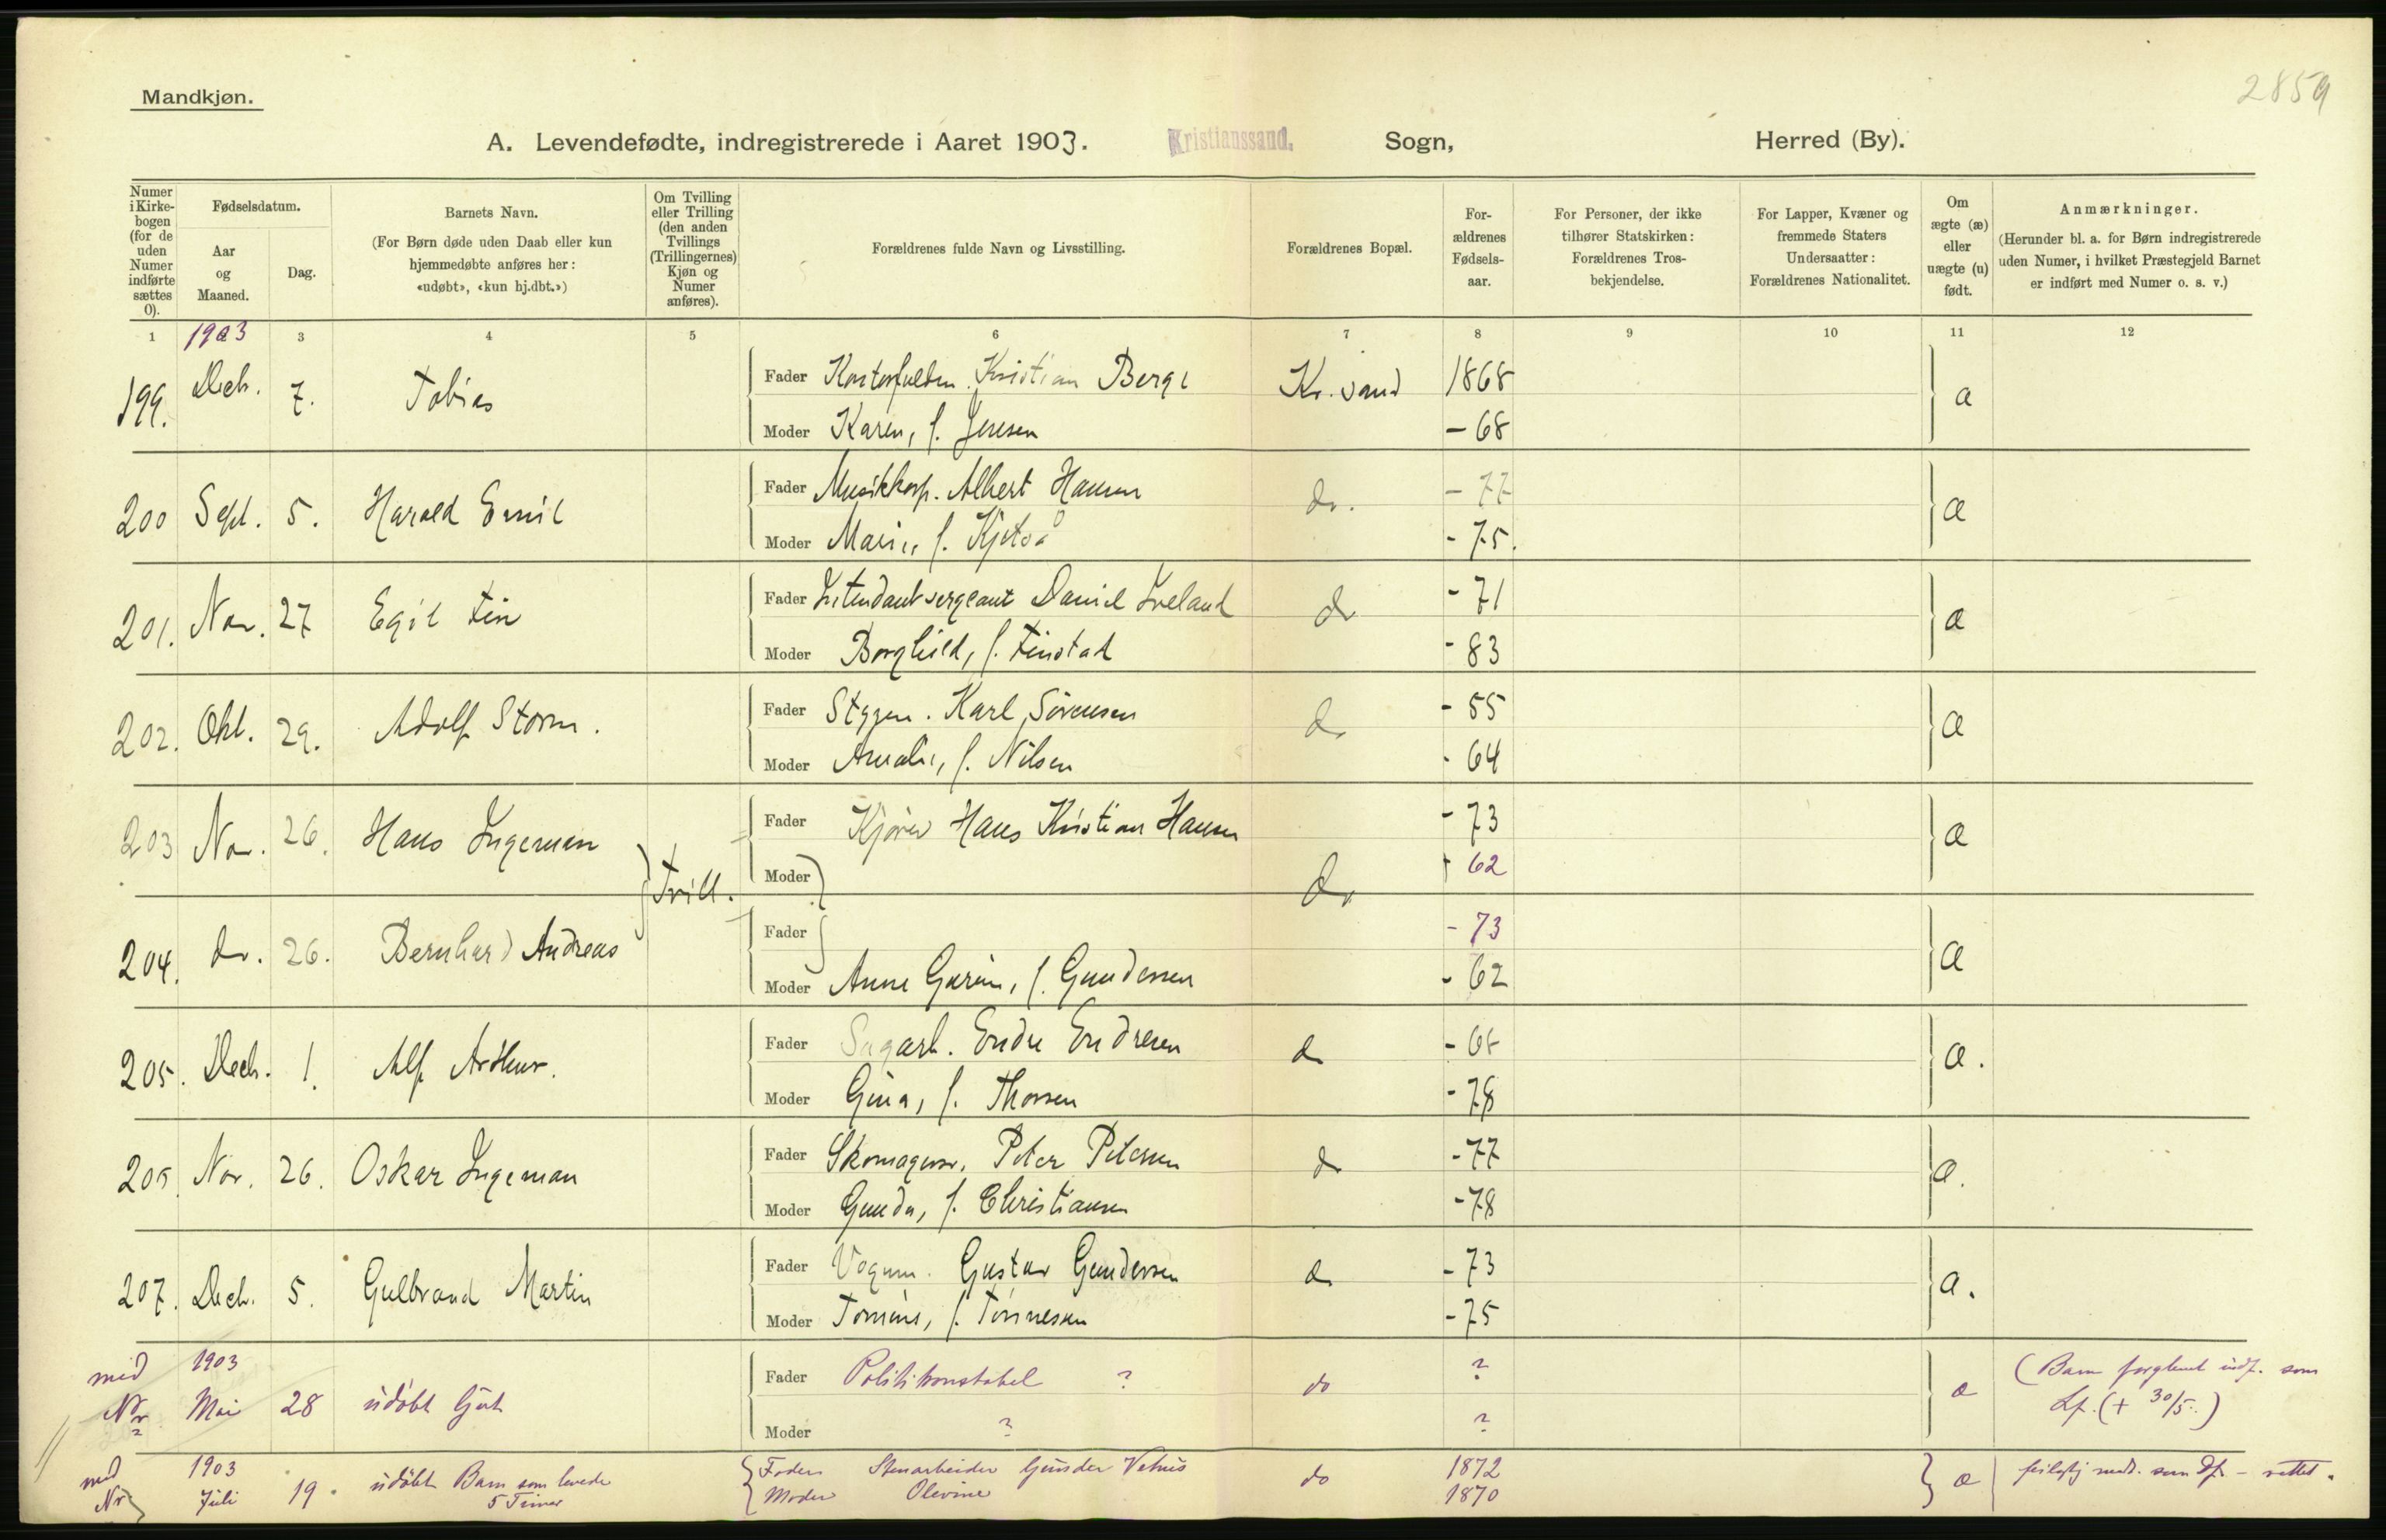 2859
Mandkjøn.
A. Levendefødte, indregistrerede i Aaret 1903. Kristianssand. Sogn, Herred (By).
Numer i Kirkebogen (for de uden Numer indførte sættes 0).
Fødselsdatum.
Aar og Maaned.
Dag.
Barnets Navn.
(For Børn døde uden Daab eller kun hjemmedøbte anføres her: «udøbt», «kun hj.dbt.»)
Om Tvilling eller Trilling (den anden Tvillings (Trillingernes) Kjøn og Numer anføres).
Forældrenes fulde Navn og Livsstilling.
Forældrenes Bopæl.
Forældrenes Fødselsaar.
For Personer, der ikke tilhører Statskirken: Forældrenes Trosbekjendelse.
For Lapper, Kvæner og fremmede Staters Undersaatter: Forældrenes Nationalitet.
Om ægte (æ) eller uægte (u) født.
Anmærkninger.
(Herunder bl. a. for Børn indregistrerede uden Numer, i hvilket Præstegjeld Barnet er indført med Numer o. s. v.)
1 1903 3 4 5 6 7 8 9 10 11 12
199. Dech. 7. Tobias Fader Kristian Berge Kr.sand 1868 æ
Moder Karen, f. Jensen - 68
200 Sept. 5. Harald Emil Fader Albert Hansen do. - 77 æ
Moder Marie, f. - 75.
201. Nov. 27 Egil Fin Fader Intendantsergeant Daniel Iveland do - 71 æ
Moder Borghild, f. Finstad - 83
202. Okt. 29. Adolf Storm. Fader Karl Sørensen do - 55 æ
Moder Amalie, f. Nilsen - 64
203 Nov. 26. Hans Ingeman Tvill. Fader Kjører Hans Kristian Hansen do - 73 æ
Moder 62
204. do. 26. Bernhard Andreas Fader - 73 æ
Moder Anne Gurine, f. Gundersen - 62
205. Dech. 1. Alf Arthur. Fader Sagarb. Endre Endresen do æ.
Moder Gina, f. Thorsen - 78
Nov. 26. Oskar Ingeman Fader Skomagersv. Peter Petersen do - 77 æ.
Moder Gunda, f. Christiansen - 78
207. Dech. 5. Gulbrand Martin Fader Vognm. Gustav Gundersen do - 73 æ.
Moder Tomine, f. Tønnesen - 75
med Nr 1903 Mai 28 udøbt Gut Fader Politikonstabel ? do ? æ (Barn forglemt indf. som
Moder ? ? (+ 30/5.)
med Nr 1903 Juli 19. udøbt Barn som levede 5 Timer Fader Stenarbeider Gunder do 1872 æ - rettet.
Moder Olevine 1870